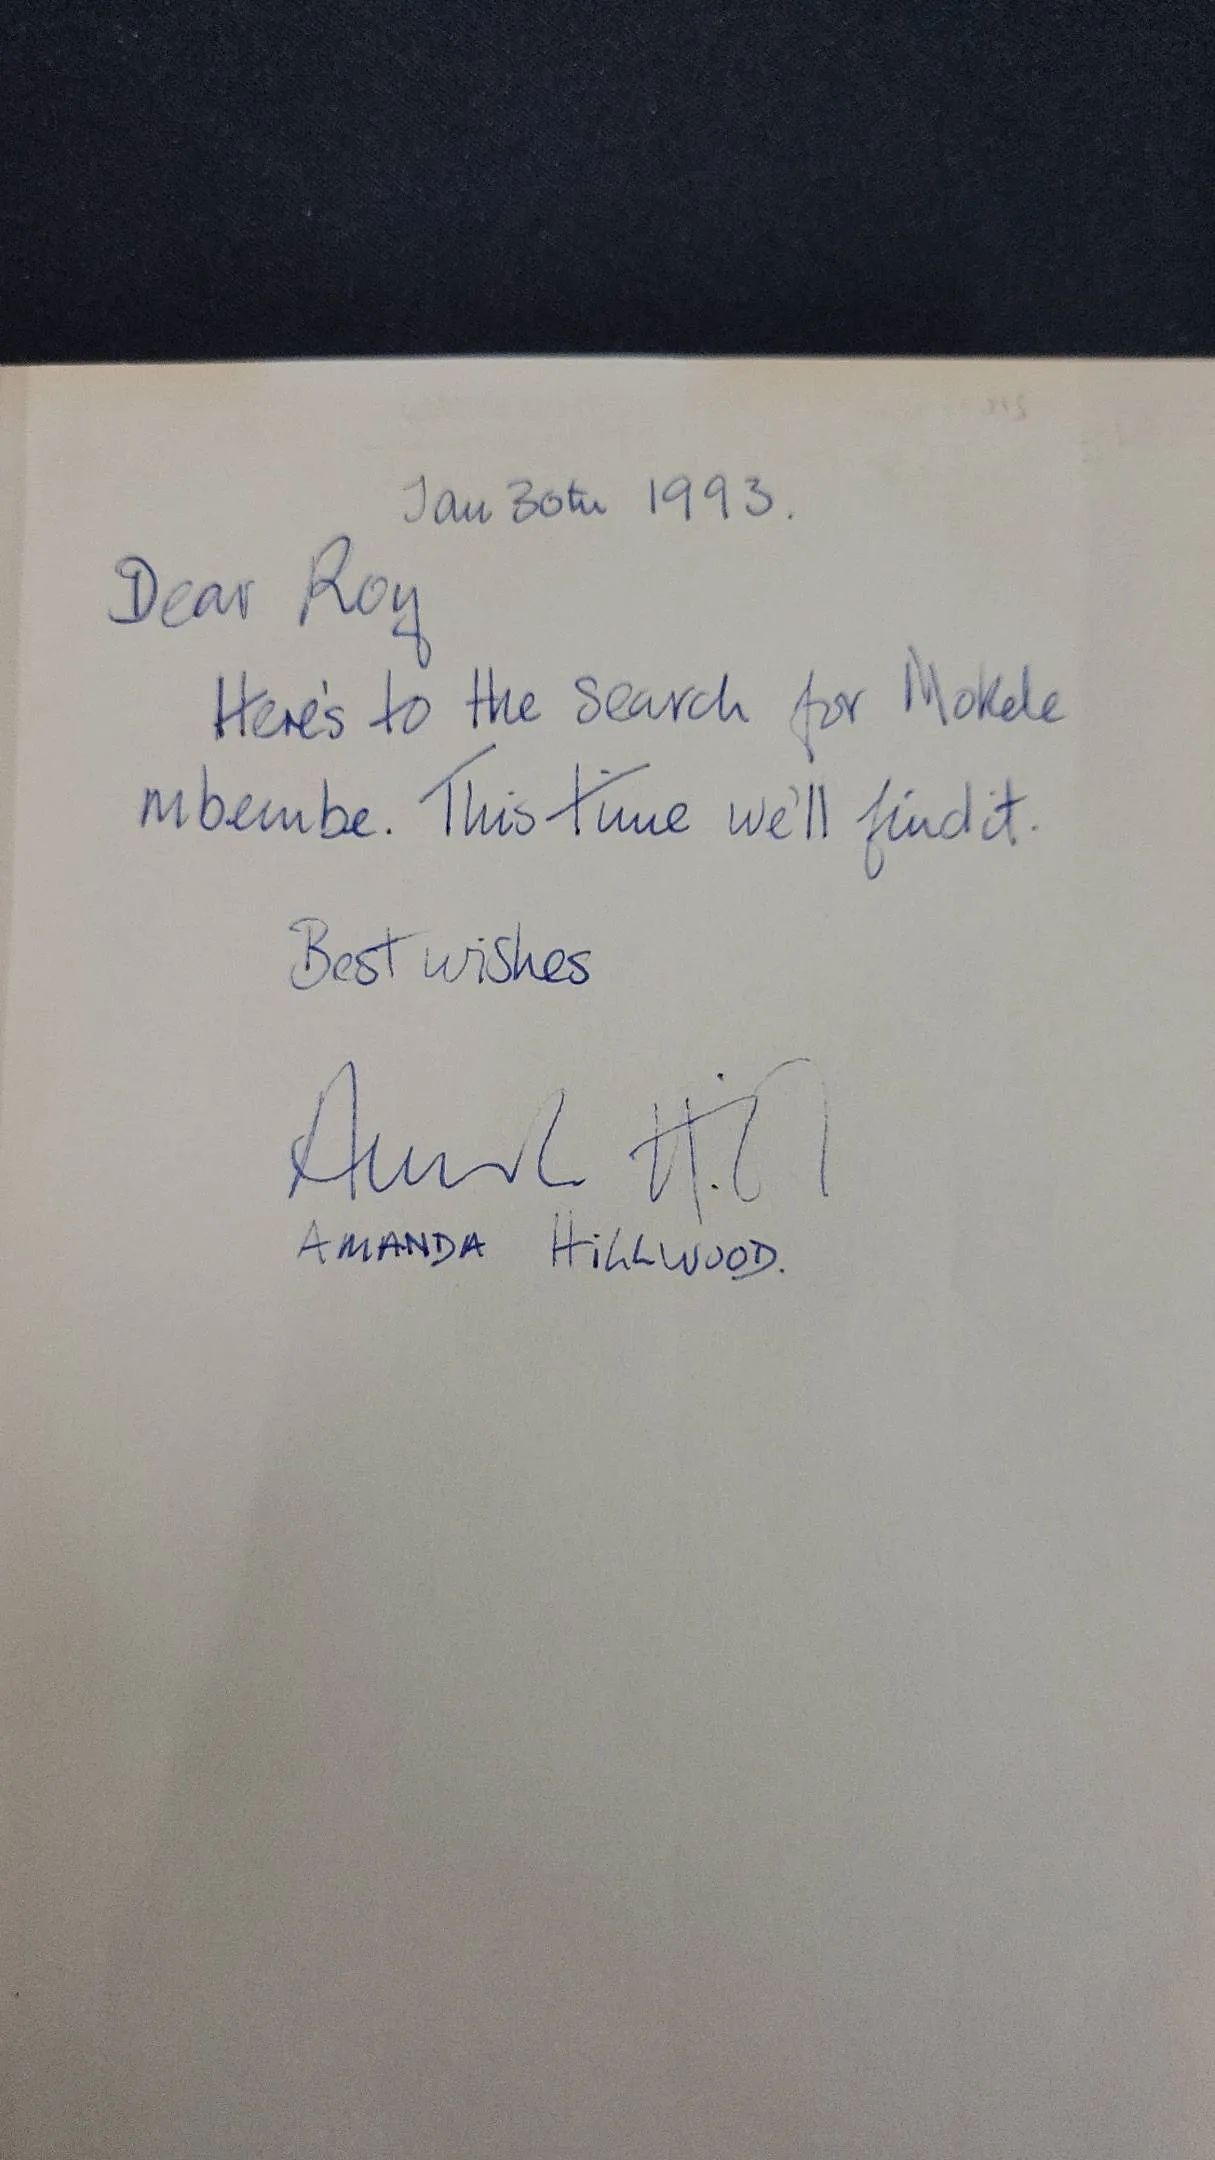 Jan 30th 1993.
Dear Roy
Here's to the search for Mokele
mbembe. This time we'll find it.
Best wishes
AMANDA HILLWOOD.